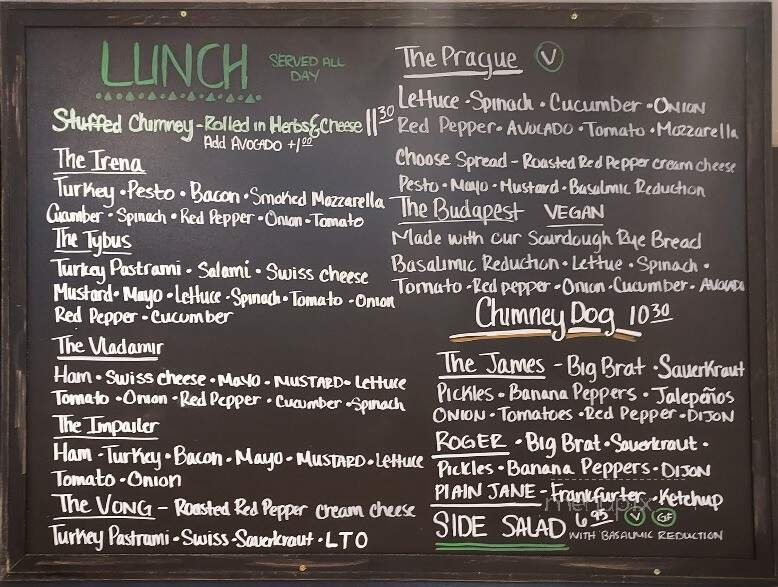 LUNCH SERVED ALL DAY
Stuffed Chimney - Rolled in Herbs & Cheese 11.30
Add AVOCADO +1.00
The Irena
Turkey • Pesto • Bacon • Smoked Mozzarella
Cucumber • Spinach • Red Pepper • Onion • Tomato
The Tybus
Turkey Pastrami • Salami • Swiss cheese
Mustard • Mayo • Lettuce • Spinach • Tomato • Onion
Red Pepper • Cucumber
The Vladamir
Ham • Swiss cheese • MAYO • MUSTARD • Lettuce
Tomato • Onion • Red Pepper • Cucumber • Spinach
The Impailer
Ham • Turkey • Bacon • Mayo • MUSTARD • Lettuce
Tomato • Onion
The VONG - Roasted Red Pepper cream cheese
Turkey Pastrami • Swiss • Sauerkraut • LTO
The Prague V
Lettuce • Spinach • Cucumber • ONION
Red Pepper • AVOCADO • Tomato • Mozzarella
Choose Spread - Roasted Red Pepper cream cheese
Pesto • Mayo • Mustard • Basalmic Reduction
The Budapest VEGAN
Made with our Sourdough Rye Bread
Basalimic Reduction • Lettue • Spinach •
Tomato • Red pepper • Onion • Cucumber • AVOCADO
Chimney Dog 10.30
The James - Big Brat • Sauerkraut
Pickles • Banana Peppers • Jalepeños
ONION • Tomatoes • Red Pepper • DIJON
ROGER • Big Brat • Sauerkraut •
Pickles • Banana Peppers • DIJON
PLAIN JANE - Frankfurter • Ketchup
SIDE SALAD 6.95 V GF
WITH BASALMIC REDUCTION